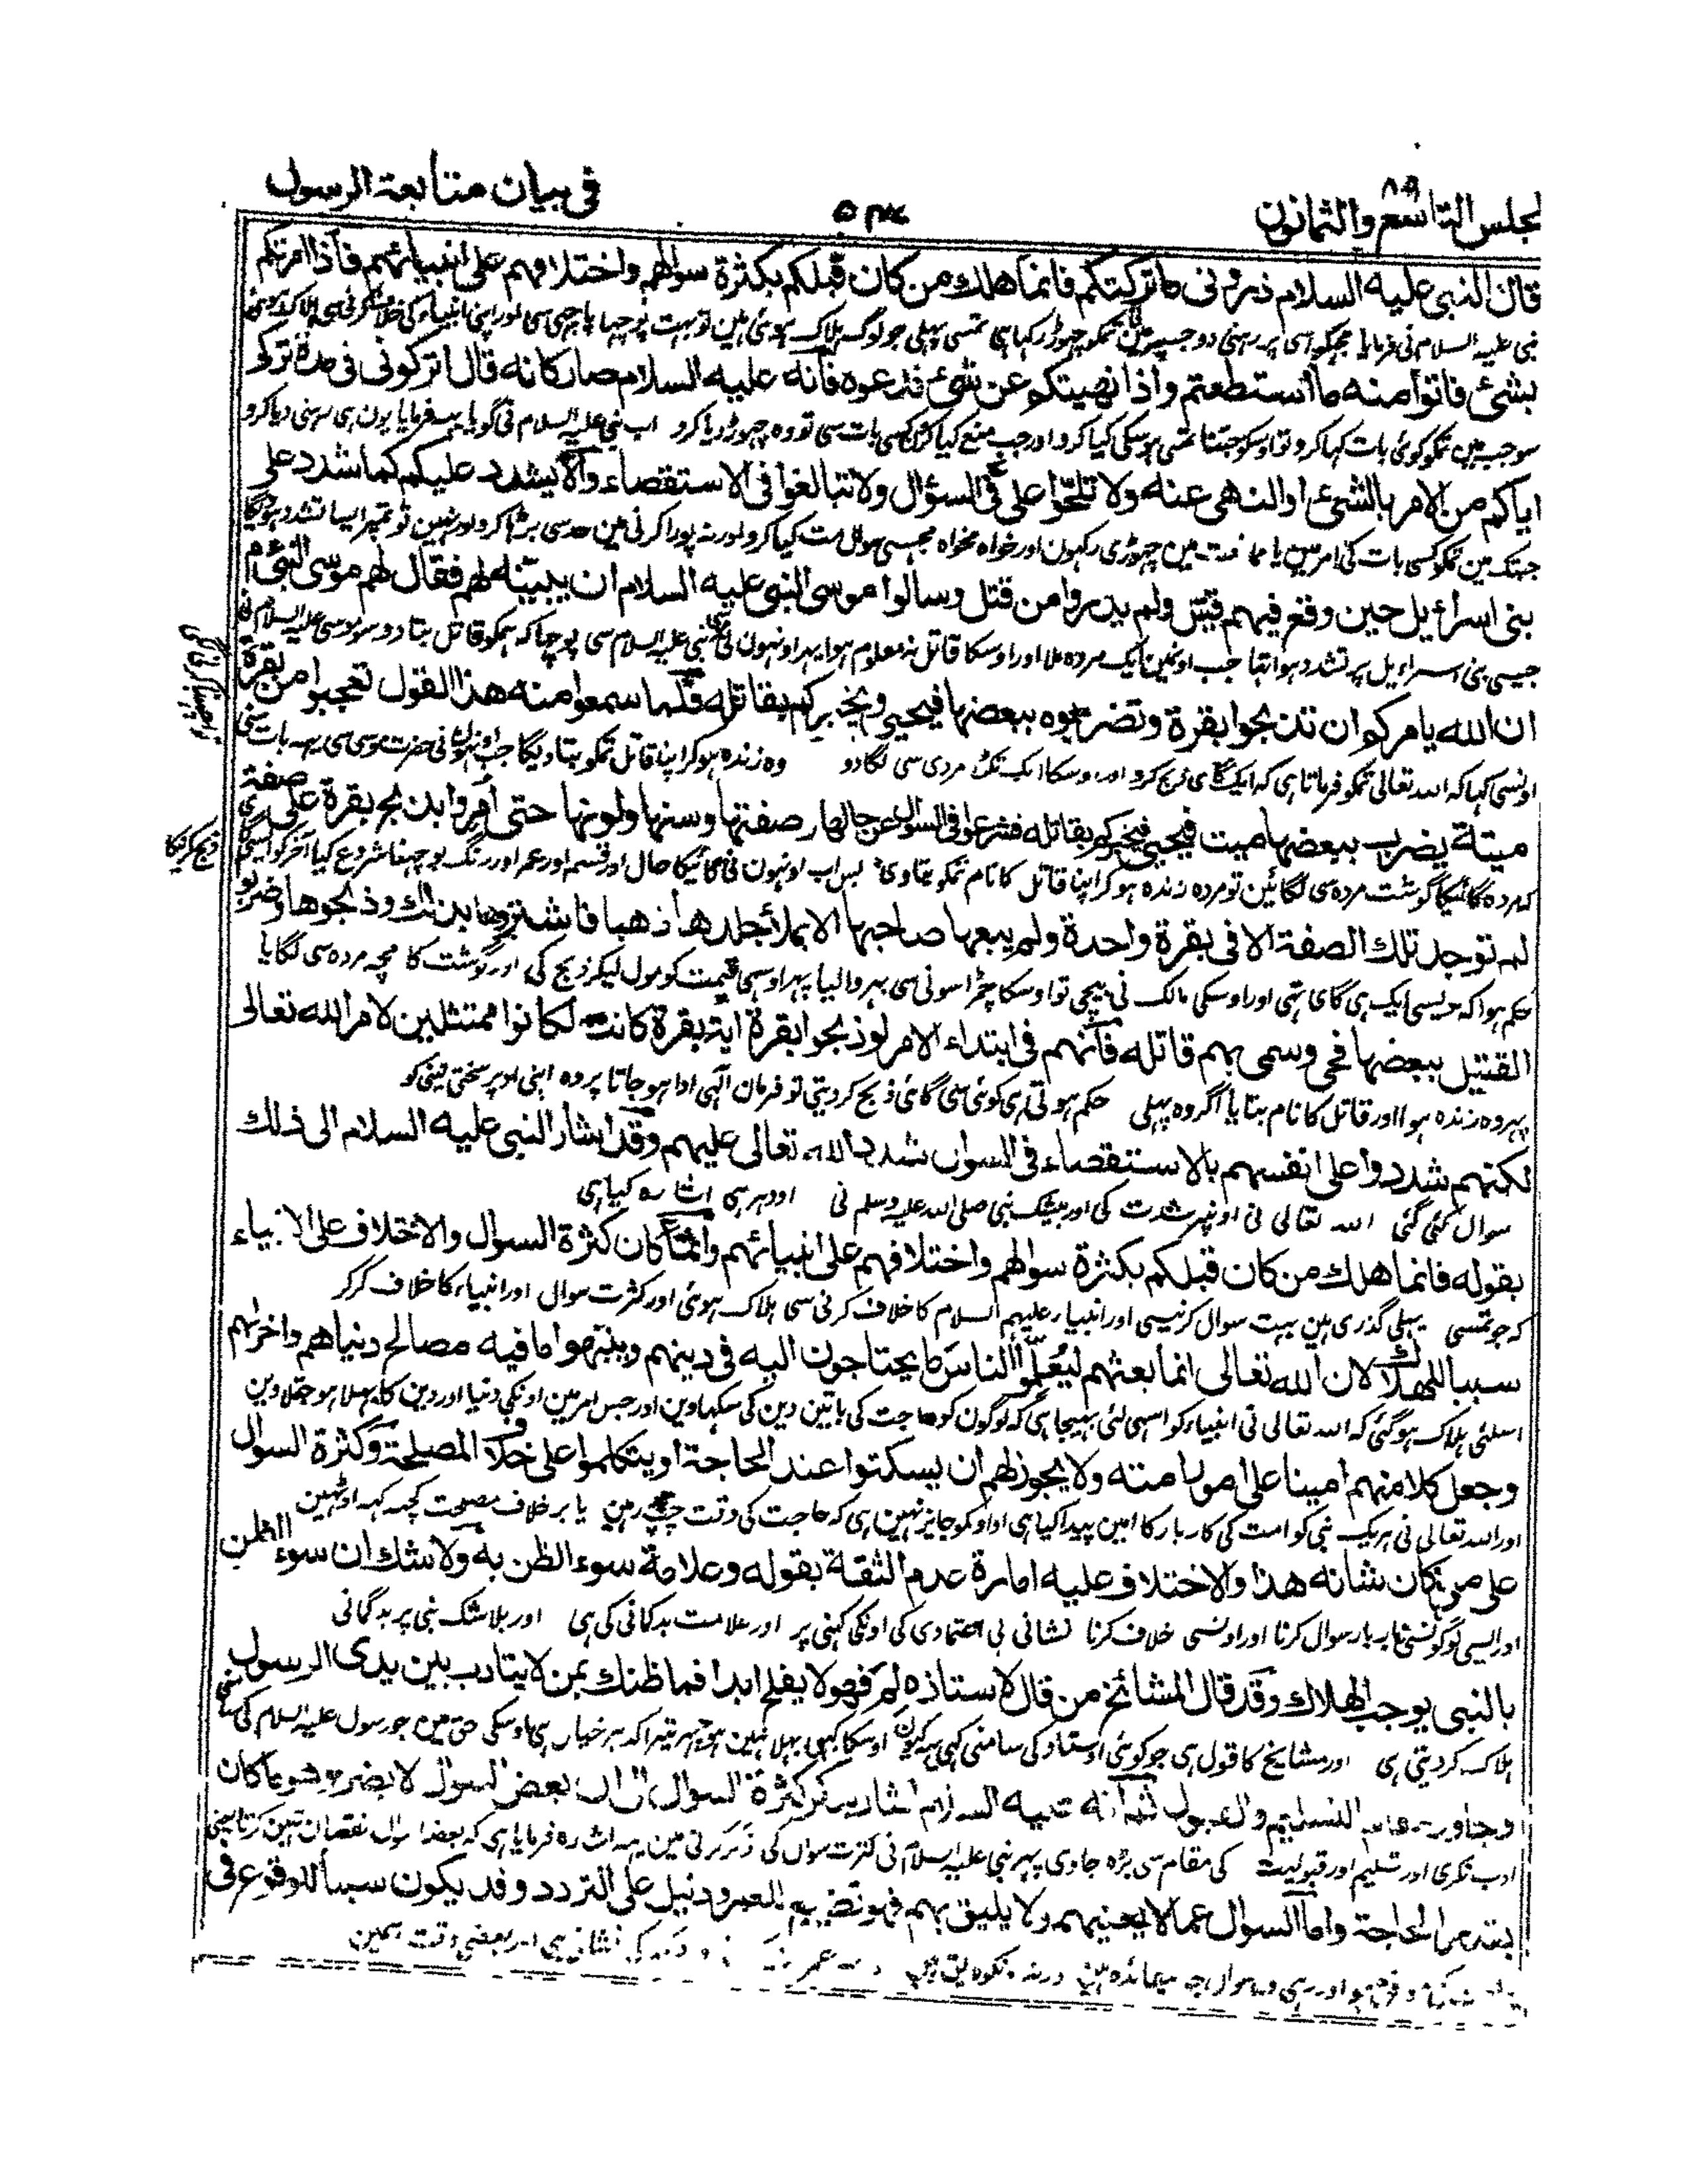 لجلس التاسع والثمانون ٨٩
في بيان متابعة الرسول
قال النبي عليه السلام ذروني ما تركتكم فانما هلك من كان قبلكم بكثرة سوالهم واختلافهم على انبيائهم فاذا امرتكم
نبی علیہ السلام نی فرمایا مجہکو اسی پر رہنی دو جسپر مین تمکو چہوڑ رکہا ہی تمسی پہلی جو لوگ ہلاک ہوئی ہین تو بہت پوچہا پاچہی سی اور اپنی انبیاء کی خلاف کرنی سی
بشئ فاتوا منه ما استطعتم واذا نهيتكم عن شئ فدعوه فانه عليه السلام صار كانه قال اتركوني في مدة تركي
سو جب مین تمکو کوئی بات کہا کرو تو اوسکو جتنا تمسی ہو سکی کیا کرو اور جب منع کیا کرون کسی بات سی تو وہ چہوڑ دیا کرو اب نبی علیہ السلام نی گویا یہہ فرمایا یون ہی رہنی دیا کرو
اياكم من الامر بالشئ او النهى عنه ولا تلحوا على في السؤال ولا تبالغوا في الاستقصاء والا يشدد عليكم كما شدد على
جبتک مین تمکو کسی بات کی امر مین یا ممانعت مین چہوڑی رکہون اور خواہ مخواہ مجہسی سوال مت کیا کرو اور نہ پورا کرنی مین حد سی بڑہا کرو اور نہین تو تمپر ایسا تشدد ہوگا
بنى اسرائيل حين وقع فيهم قتيل ولم يدروا من قتل وسالوا موسى النبي عليه السلام ان يبينه لهم فقال لهم موسى النبي عم
جیسی بنی اسراءیل پر تشدد ہوا تہا جب اونمین ایک مردہ ملا اور اوسکا قاتل نہ معلوم ہوا پہر اونہون نی نبی علیہ السلام سی پوچہا کہ ہمکو قاتل بتا دو سو موسی علیہ السلام نی
ان الله يامركم ان تذبحوا بقرة وتضربوه ببعضها فيحيى ويخبركم بقاتله فلما سمعوا منه هذا القول تعجبوا من بقرة
اونسی کہا کہ اللہ تعالی تمکو فرماتا ہی کہ ایک گای ذبح کرو اور اوسکا ایک ٹکڑا مردی سی لگا دو وہ زندہ ہو کر اپنا قاتل تمکو بتا دیگا جب اونہون نی حضرت موسی سی یہہ بات سنی
ميتة يضرب ببعضها ميت فيحيى فيخبركم بقاتله فشرعوا في السوال عن حالها وصفتها وسنها ولونها حتى امروا بذبح بقرة على صفة
کہ مردہ گائیکا گوشت مردہ سی لگائین تو مردہ زندہ ہو کر اپنا قاتل کا نام تمکو بتاوی بس اب اونہون نی گائیکا حال اور قسم اور عمر اور رنگ پوچہنا شروع کیا آخر کو
ذبح کرنیکا
لم توجد تلك الصفة الا في بقرة واحدة ولم يبعها صاحبها الا بملأ جلدها ذهبا فاشتروها بذلك وذبحوها وضربوا
حکم ہوا کہ ویسی ایک ہی گای تہی اور اوسکی مالک نی بیچی تو اوسکا چمڑا سونی سی بہروا لیا پہر اوسی قیمت کو مول لیکر ذبح کی اور گوشت کا مچہ مردہ سی لگایا
القتيل ببعضها فحى وسمى بهم قاتله فانهم في ابتداء الامر لو ذبحوا بقرة اية بقرة كانت لكانوا ممتثلين لامر الله تعالى
پہر وہ زندہ ہوا اور قاتل کا نام بتایا اگر وہ پہلی حکم ہوتی ہی کوئی سی گائی ذبح کر دیتی تو فرمان الہی ادا ہو جاتا پر وہ اپنی اوپر سختی لینی کو
لكنهم شددوا على انفسهم بالاستقصاء في السوال شدد الله تعالى عليهم وقد اشار النبي عليه السلام الى ذلك
سوال کئی گئی اللہ تعالی نی اونپر شدت کی اور بیشک نبی صلی اللہ علیہ وسلم نی اودہر ہی اشارہ کیا ہی
بقوله فانما هلك من كان قبلكم بكثرة سوالهم واختلافهم على انبيائهم وانما كان كثرة السوال والاختلاف على الانبياء
کہ جو تمسی پہلی گذری ہین بہت سوال کرنیسی اور انبیاء علیہم السلام کا خلاف کرنی سی ہلاک ہوئی اور کثرت سوال اور انبیاء کا خلاف کر کر
سببا للهلاك لان الله تعالى انما بعثهم ليعلموا الناس ما يحتاجون اليه في دينهم وينبهوا ما فيه مصالح دنياهم واخرتهم
اسلئی ہلاک ہو گئی کہ اللہ تعالی نی انبیاء کو اسی لئی بہیجا ہی کہ لوگون کو حاجت کی باتین دین کی سکہاوین اور جس امر مین اونکی دنیا اور دین کا بہلا ہو جتلاوین
وجعل كلا منهم امينا على امور امته ولا يجوز لهم ان يسكتوا عند الحاجة او يتكلموا على خلاف المصلحة وكثرة السوال
اور اللہ تعالی نی ہریک نبی کو امت کی کاربار کا امین پیدا کیا ہی او اونکو جایز نہین ہی کہ حاجت کی وقت چپ رہین یا بر خلاف مصلحت کچہہ کہہ اوٹہین
على من كان شانه هذا والاختلاف عليه امارة عدم الثقة بقوله وعلامة سوء الظن به ولا شك ان سوء الظن
اور ایسی لوگونسی بار بار سوال کرنا اور اونسی خلاف کرنا نشانی بی اعتمادی کی اونکی کہنی پر اور علامت بدگمانی کی ہی اور بلا شک نبی پر بدگمانی
بالنبي يوجب الهلاك وقد قال المشائخ من قال لاستاذه لم فهو لا يفلح ابدا فما ظنك بمن لا يتادب بين يدى الرسول
ہلاک کر دیتی ہی اور مشایخ کا قول ہی جو کوئی اوستاد کی سامنی کہی یہہ کیون اوسکا کبہی بہلا نہین ہو پہر تیرا کدہر خیال ہی اوسکی حق مین جو رسول علیہ السلام کی
التسليم والقبول ثم انه عليه السلام اشار بذكر كثرة السوال الى ان بعض السوال لا يضر وهو ما كان
ادب نکری اور تسلیم اور قبولیت کی مقام سی بڑہ جاوی پہر نبی علیہ السلام نی کثرت سوال کی ذکر کرنی مین یہہ اشارہ فرمایا ہی کہ بعضا سوال نقصان نہین کرتا
بقدر الحاجة واما السوال عما لا يعنيهم ولا يليق بهم فهو تضييع العمر ودليل على التردد وقد يكون سببا للوقوع في
نشانی ہی اور بعضی وقت ہمین